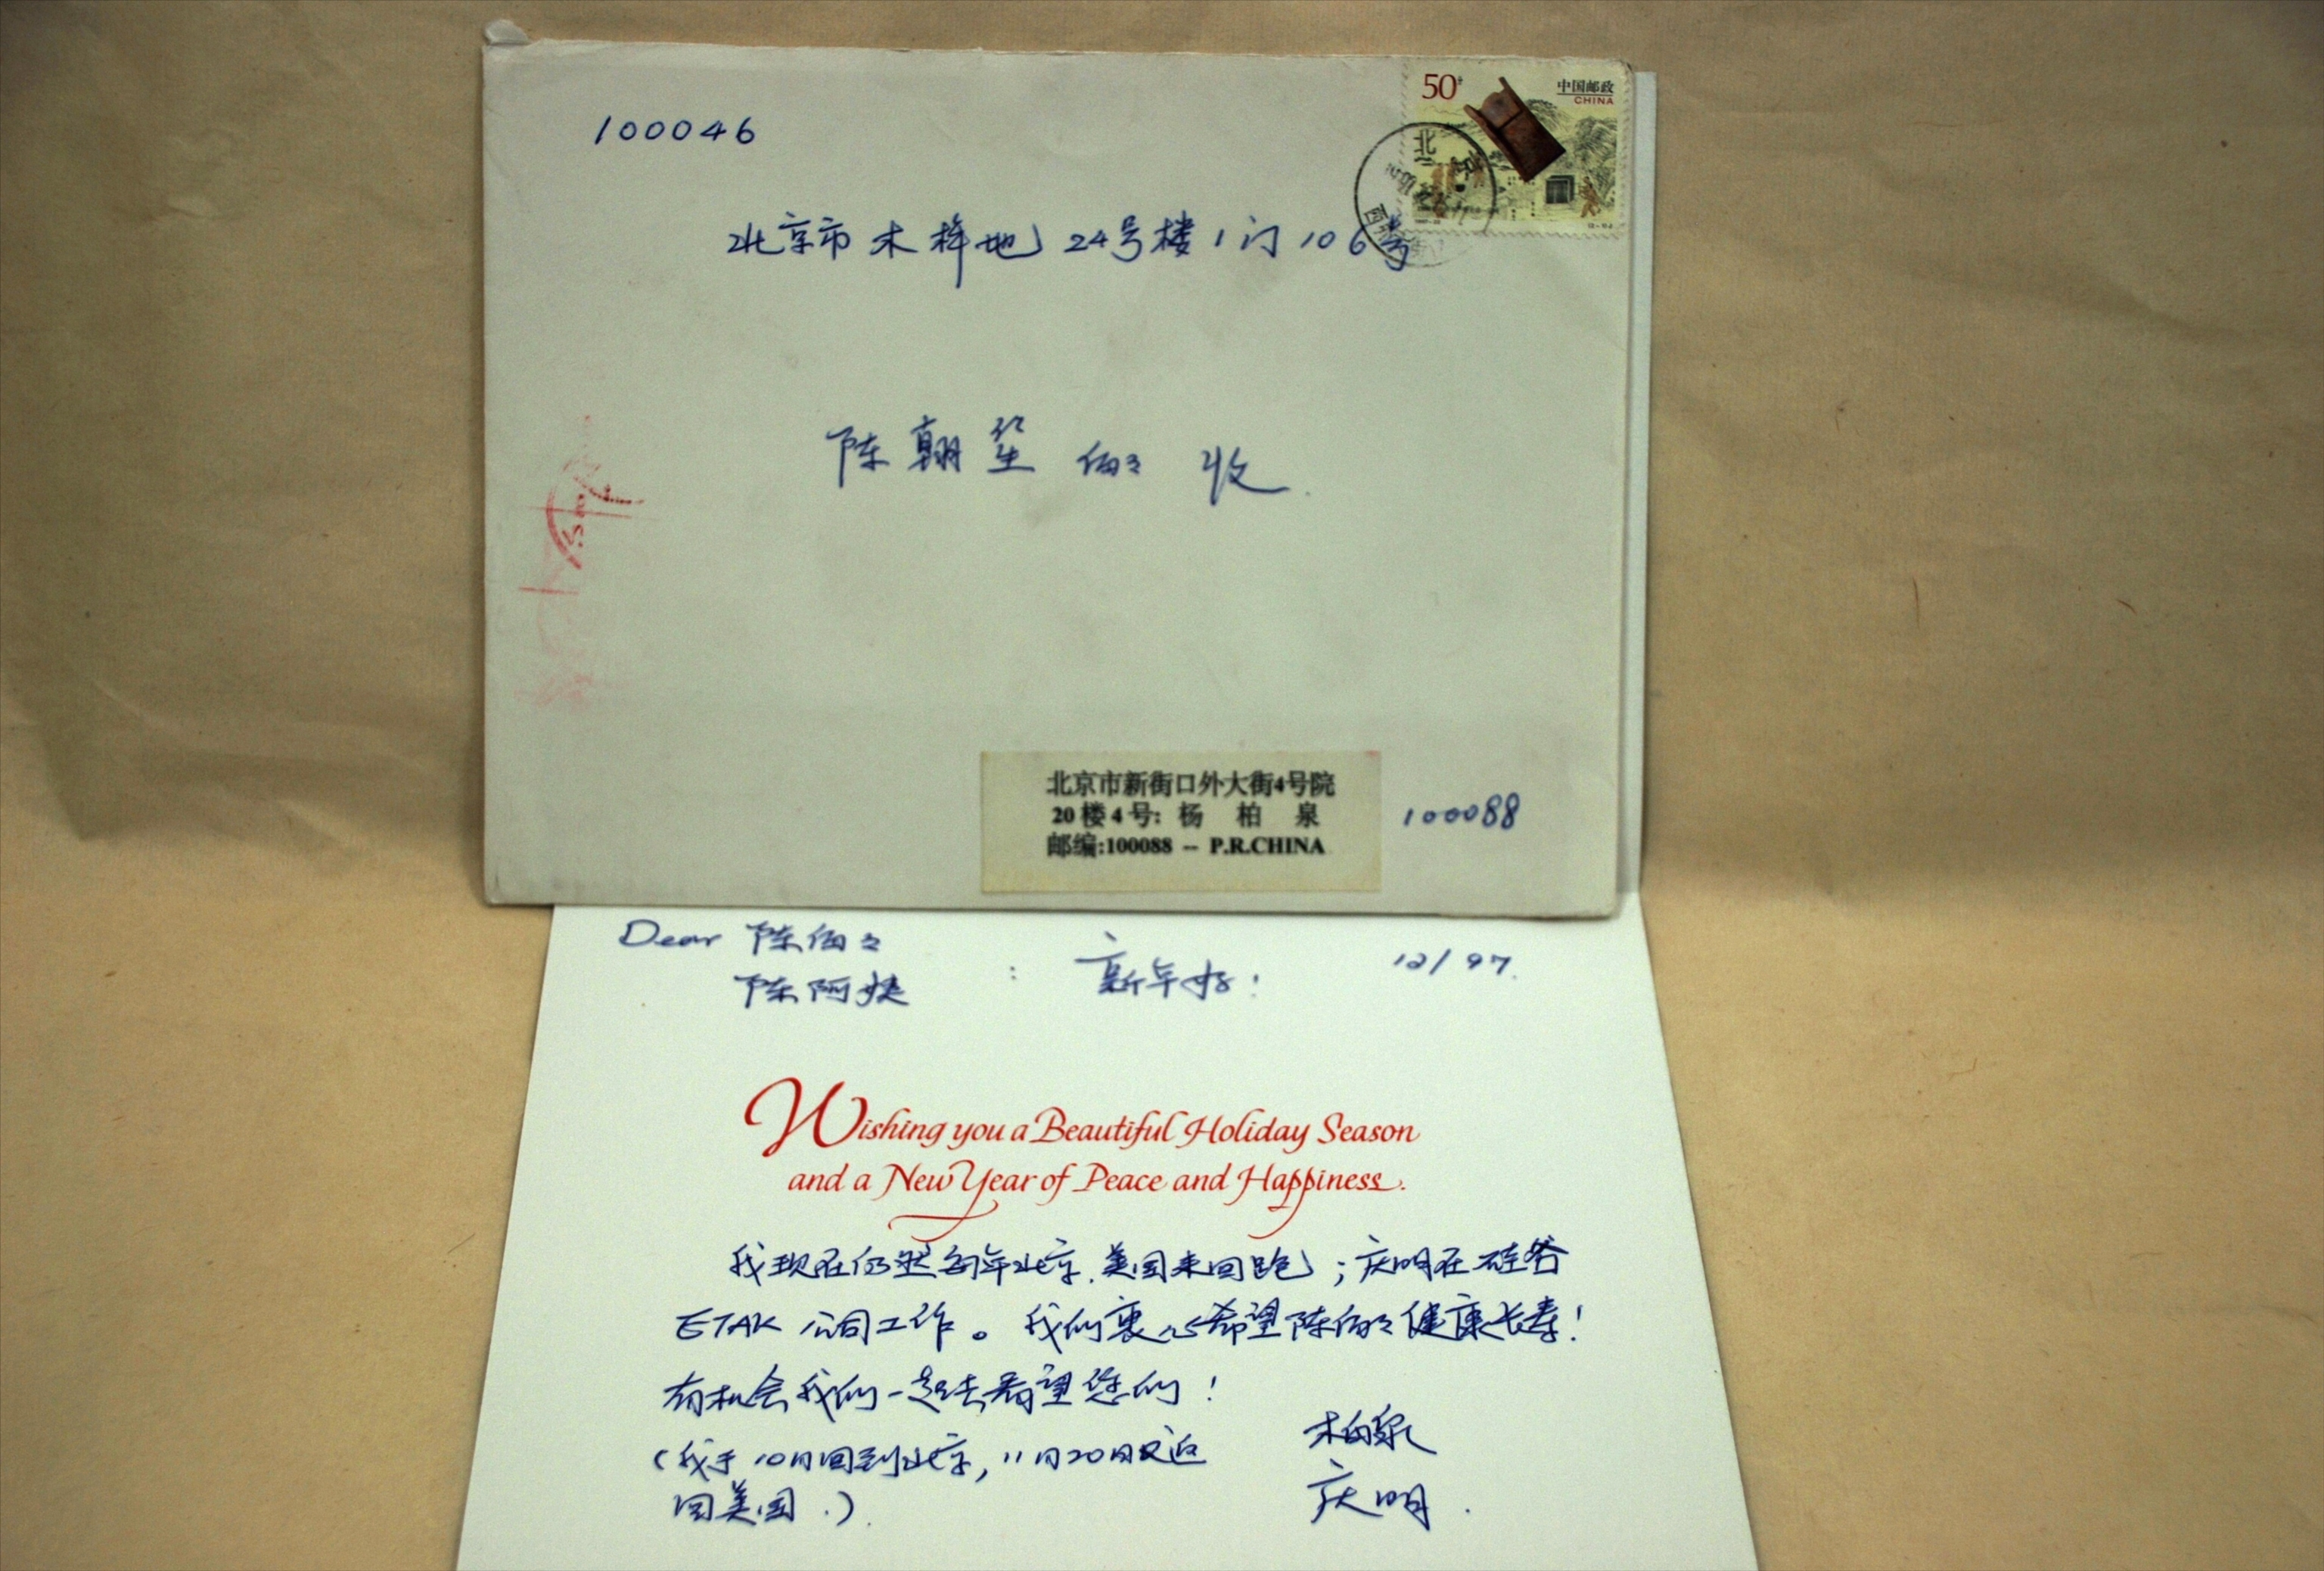 100046
50分
中国邮政
CHINA
北京
北京市木樨地24号楼1门106号
陈翰笙伯々 收
北京市新街口外大街4号院
20楼4号: 杨 柏 泉
邮编:100088 -- P.R.CHINA
100088
Dear 陈伯々
陈阿姨 : 新年好! 12/97.
Wishing you a Beautiful Holiday Season
and a New Year of Peace and Happiness.
我现在仍然每年北京、美国来回跑;庆明在硅谷
ETAK公司工作。我们衷心希望陈伯々健康长寿!
有机会我们一起去看望您们!
(我于10月回到北京,11月20日又返
回美国.).
柏泉
庆明.